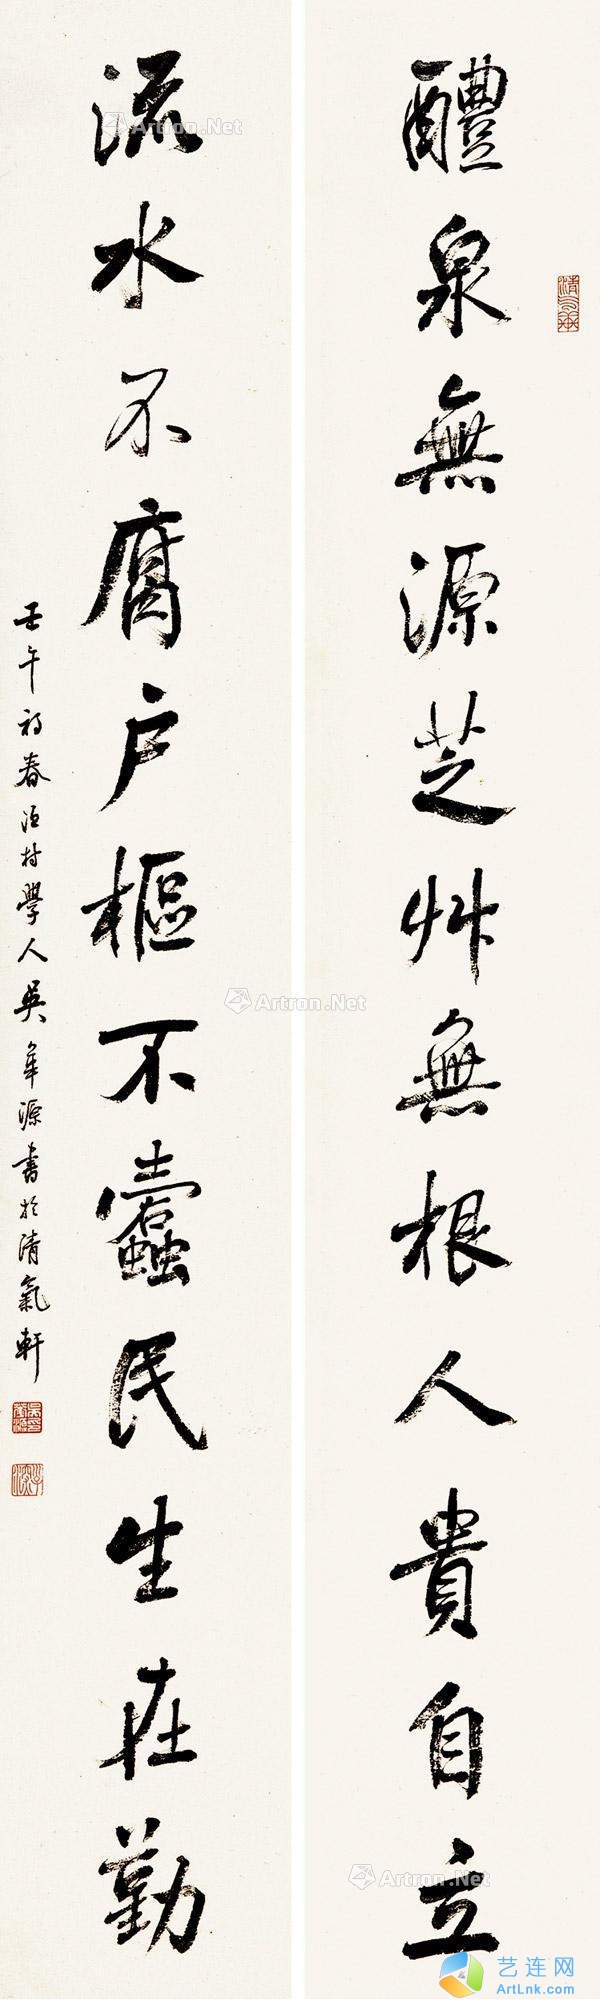 醴泉無源芝艸無根人貴自立
流水不腐户樞不蠹民生在勤
壬午初春江村學人吳華源書於清氣軒
Artron.Net
Artron.Net
Artron.Net
Artron.Net
艺连网
ArtLnk.com